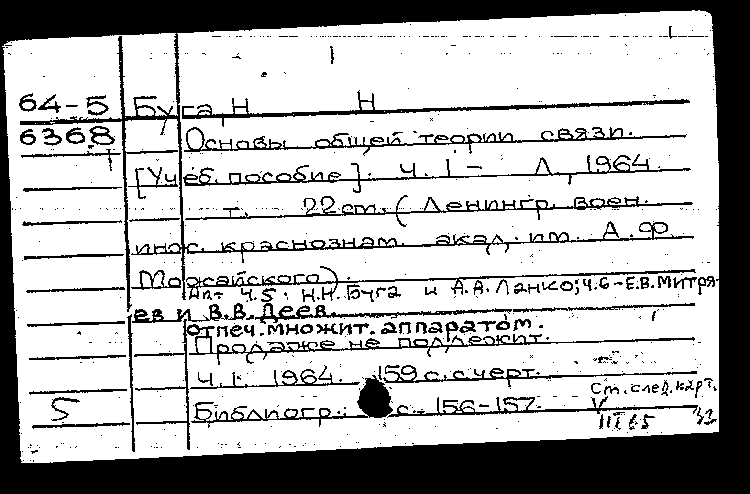 64-5 Буга, Н Н
6368 Основы общей теории связи.
[Учеб. пособие]. Ч. I - Л, 1964.
т. 22 см. (Ленингр. воен.
инж. краснознам. акад. им. А. Ф.
Можайского).
Ап: Ч.5: Н.Н. Буга и А.А. Ланко; Ч.6 - Е.В. Митря-
ев и В.В. Деев.
отпеч. множит. аппаратом.
Продаже не подлежит.
Ч. I. 1964. 159 с. с черт.
Ст. след. карт.
5 Библиогр.: с. 156-157. V
III 65